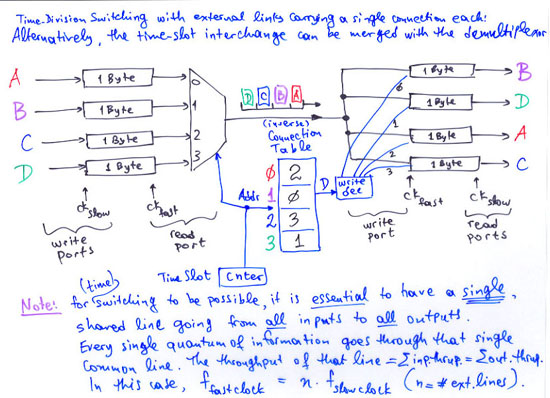 Time-Division Switching with external links carrying a single connection each:
Alternatively, the time-slot interchange can be merged with the demultiplexor
A 1 Byte 0 1 Byte B
B 1 Byte 1 D C B A 0 1 Byte D
C 1 Byte 2 (inverse) Connection Table 1 1 Byte A
D 1 Byte 3 2 3 1 Byte C
Addr D write dec
0 2
1 0
2 3
3 1
ck slow ck fast ck fast ck slow
write ports read port write port read ports
(time) Time Slot Cnter
Note: for switching to be possible, it is essential to have a single,
shared line going from all inputs to all outputs.
Every single quantum of information goes through that single
common line. The throughput of that line = Σ inp.thrup. = Σ out.thrup.
In this case, f fastclock = n · f slowclock (n = # ext. lines).